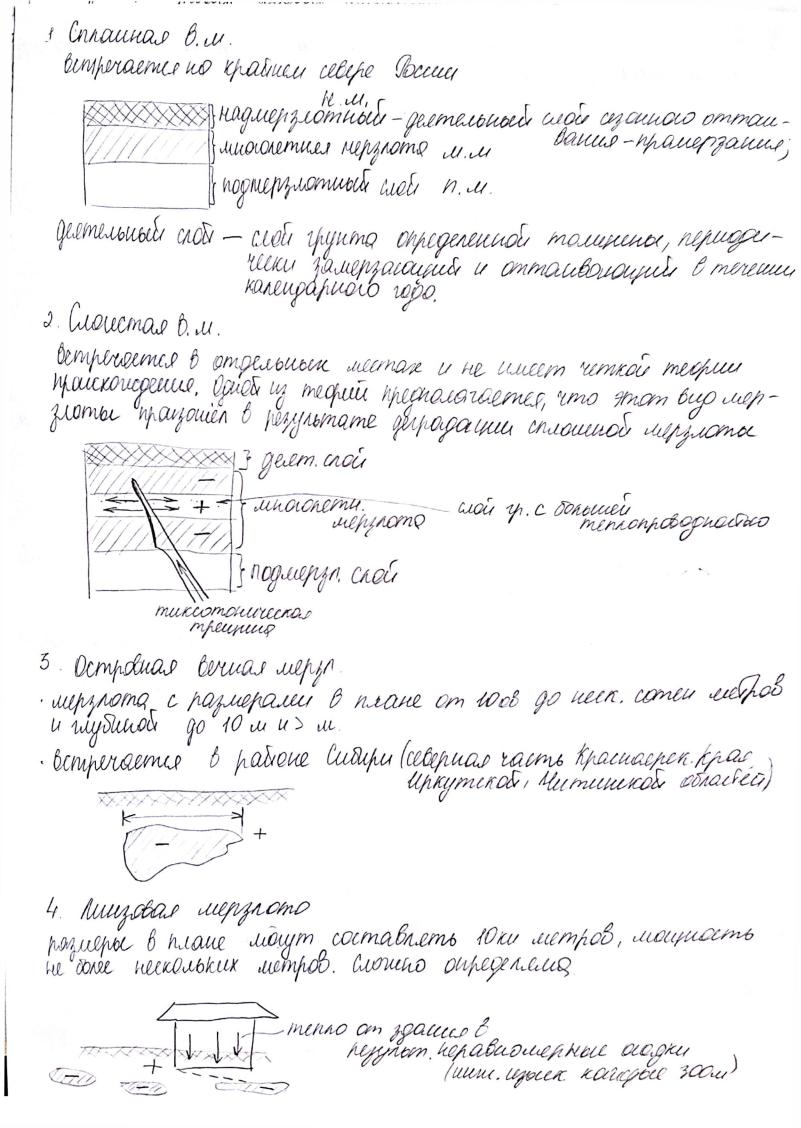 1 Сплошная в.м.
встречается на крайнем севере России
н.м.
надмерзлотный – деятельный слой сезонного оттаи-
вания-промерзания;
многолетняя мерзлота м.м
подмерзлотный слой п.м.
деятельный слой – слой грунта определенной толщины, периоди-
чески замерзающий и оттаивающий в течении
календарного года.
2. Слоистая в.м.
встречается в отдельных местах и не имеет четкой теории
происхождения. Одной из теорий предполагается, что этот вид мер-
злоты произошёл в результате деградации сплошной мерзлоты
деят. слой
–
+
–
многолетн.
мерзлота
слой гр. с большей
теплопроводностью
подмерзл. слой
тиксотоническая
трещина
3. Островная вечная мерзл.
· мерзлота с размерами в плане от 100в до неск. сотен метров
и глубиной до 10 м и > м.
· встречается в районе Сибири (северная часть Красноярск. края,
Иркутской, Читинской областей)
–
+
4. Линзовая мерзлота
размеры в плане могут составлять 10ки метров, мощность
не более нескольких метров. Сложно определяема
тепло от здания в
результ. неравномерные осадки
(инж. изыск каждые 300м)
+
–
–
–